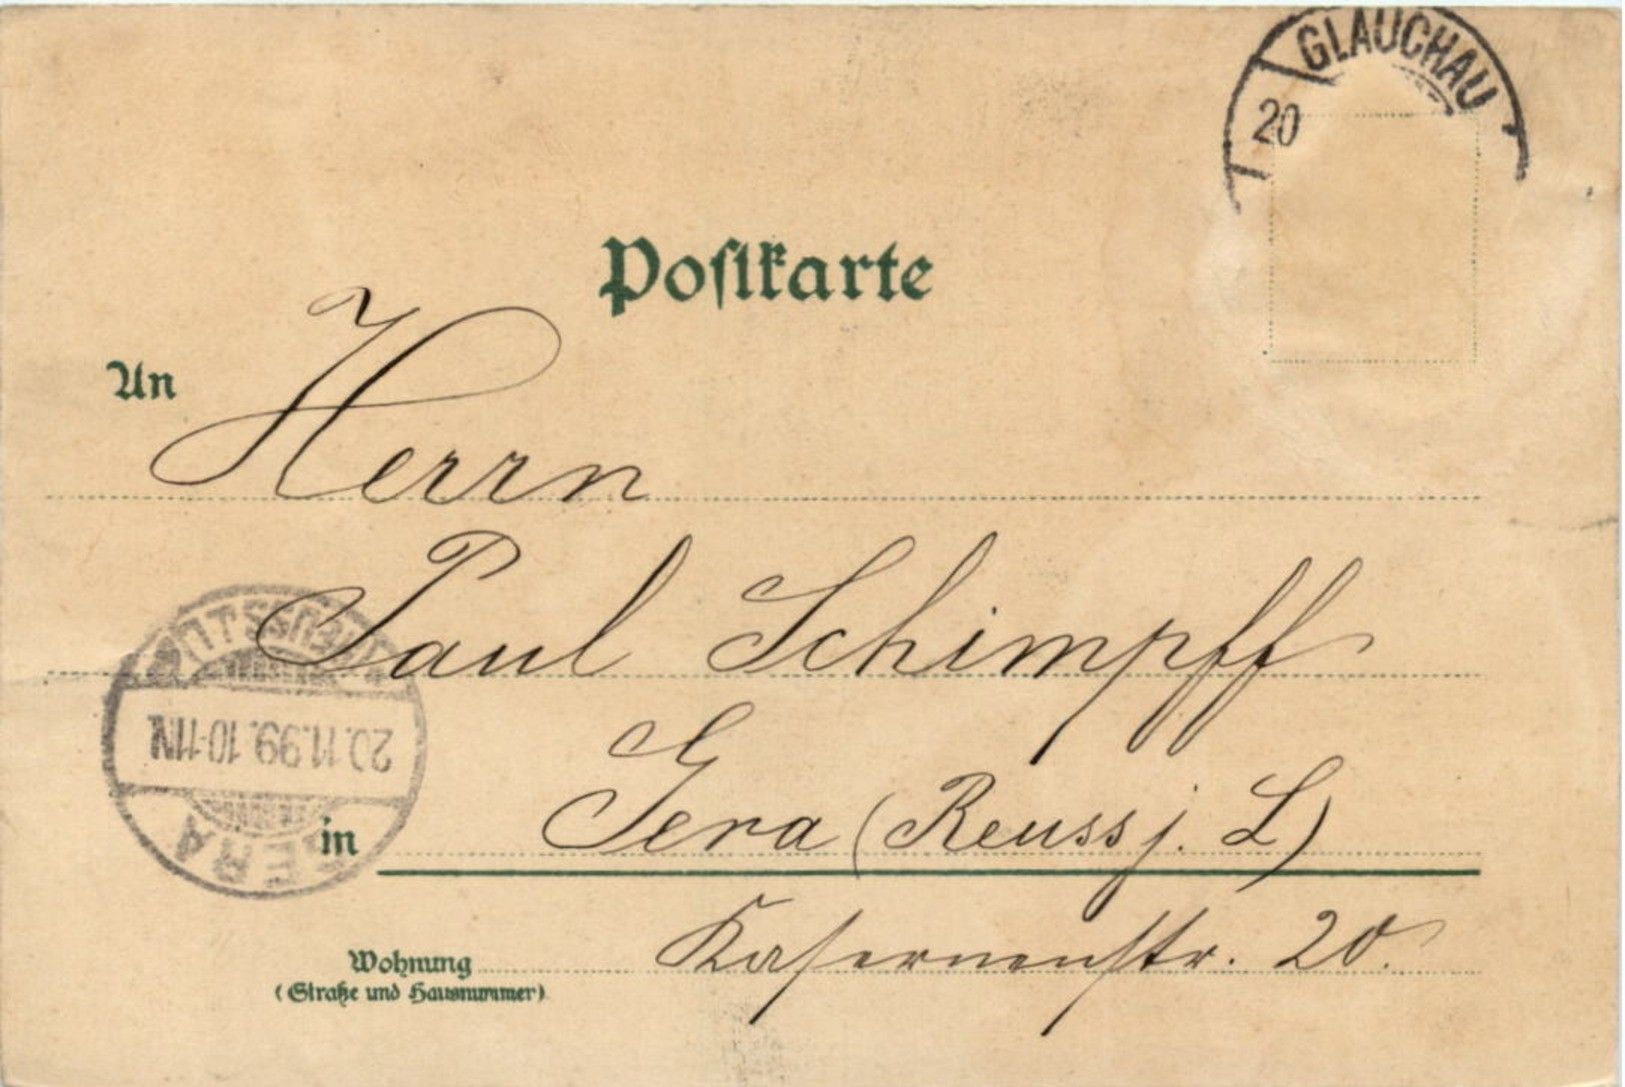 GLAUCHAU
20
Postkarte
An Herrn
Paul Schimpff
20.11.99.10-11N.
in Gera (Reuss j. L)
GERA
Kasernenstr. 20.
Wohnung
(Straße und Hausnummer)